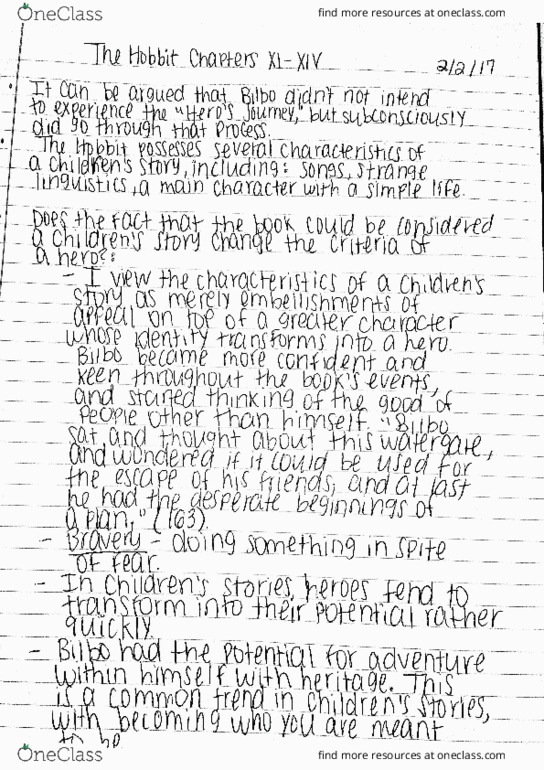 OneClass find more resources at oneclass.com
The Hobbit Chapters XI-XIV 2/2/17
• It can be argued that Bilbo didn't not intend
to experience the "Hero's Journey," but subconsciously
did go through that process.
• The Hobbit possesses several characteristics of
a children's story, including: songs, strange
linguistics, a main character with a simple life.
Does the fact that the book could be considered
a children's story change the criteria of
a hero?:
- I view the characteristics of a children's
story as merely embellishments of
appeal on top of a greater character
whose identity transforms into a hero.
Bilbo became more confident and
keen throughout the book's events,
and started thinking of the good of
people other than himself. "Bilbo
sat and thought about this watergate,
and wondered if it could be used for
the escape of his friends, and at last
he had the desperate beginnings of
a plan," (163).
- Bravery - doing something in spite
of fear.
- In children's stories, heroes tend to
transform into their potential rather
quickly.
- Bilbo had the potential for adventure
within himself with heritage. This
is a common trend in children's stories,
with becoming who you are meant
to be
OneClass find more resources at oneclass.com